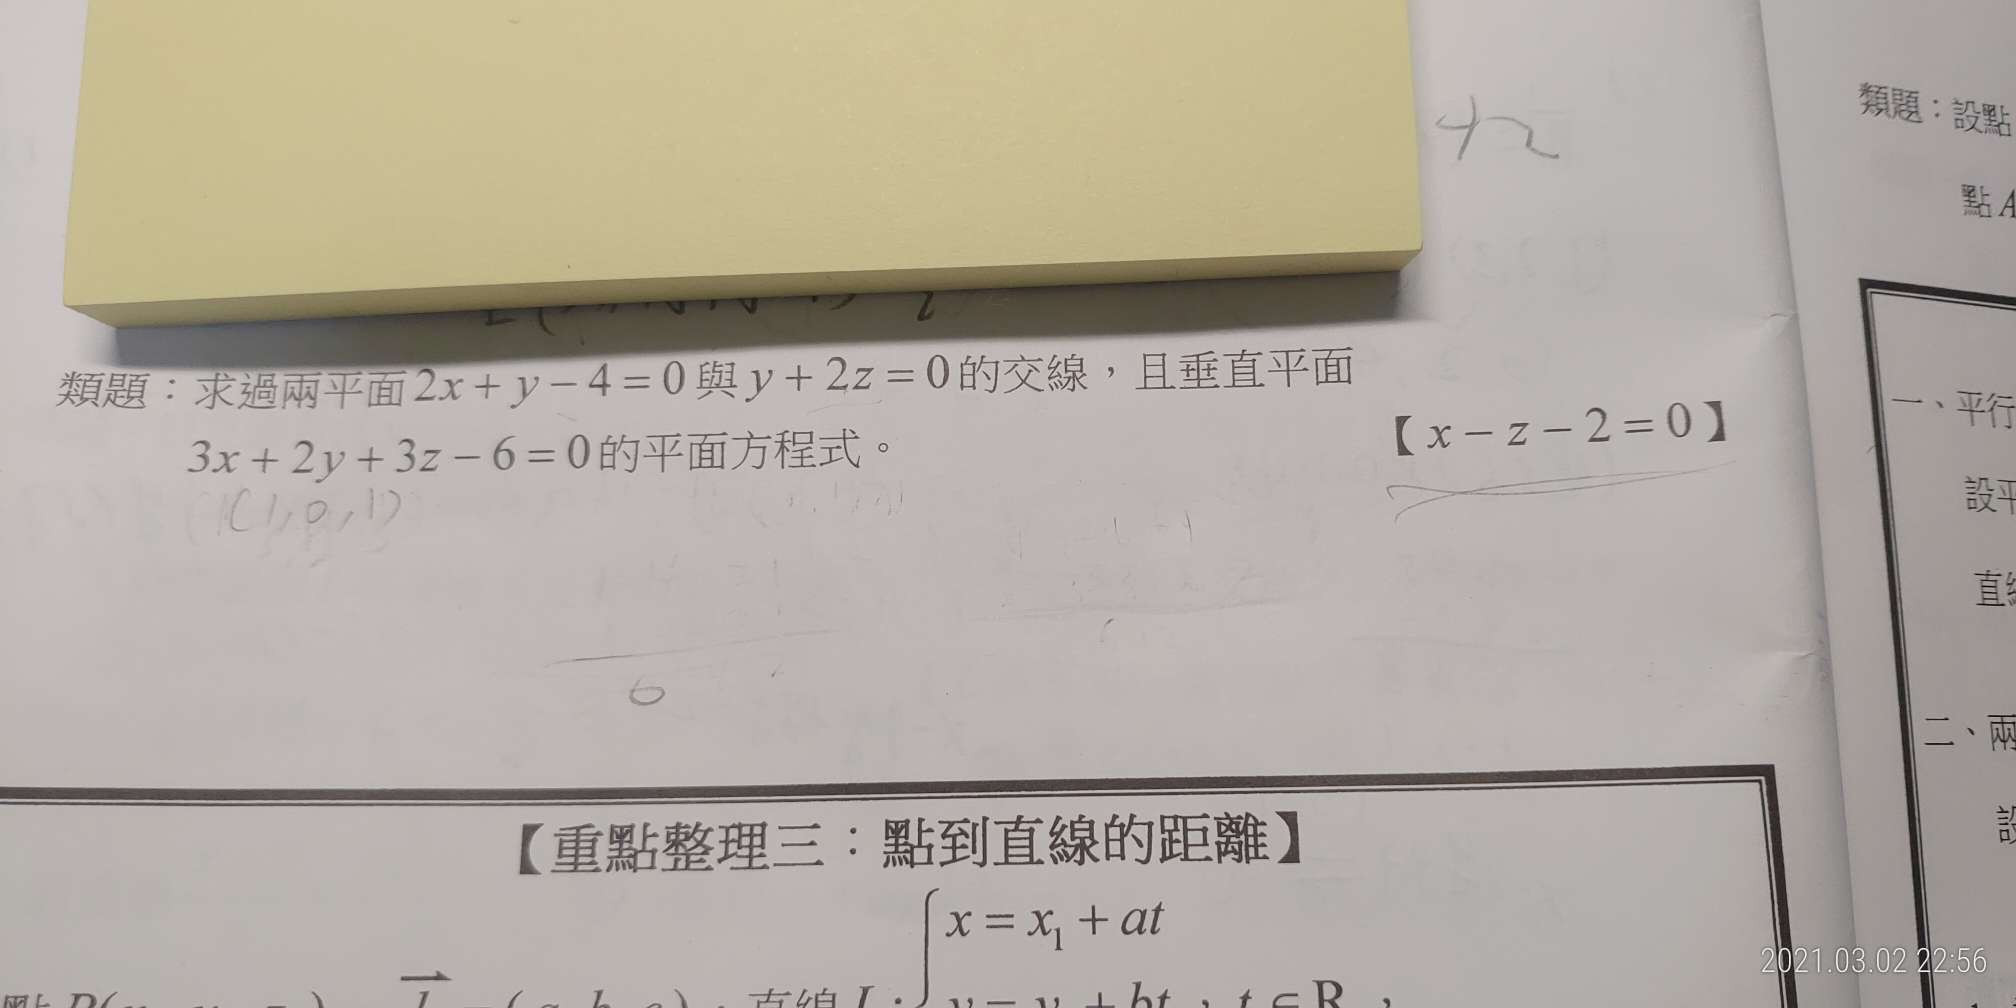 類題：求過兩平面 2x + y − 4 = 0 與 y + 2z = 0 的交線，且垂直平面
3x + 2y + 3z − 6 = 0 的平面方程式。
【 x − z − 2 = 0 】
(1, 0, 1)
6
【重點整理三：點到直線的距離】
x = x₁ + at
直線 L：
t ∈ R，
類題：設點
點 A
一、平行
設平
直
二、兩
設
2021.03.02 22:56